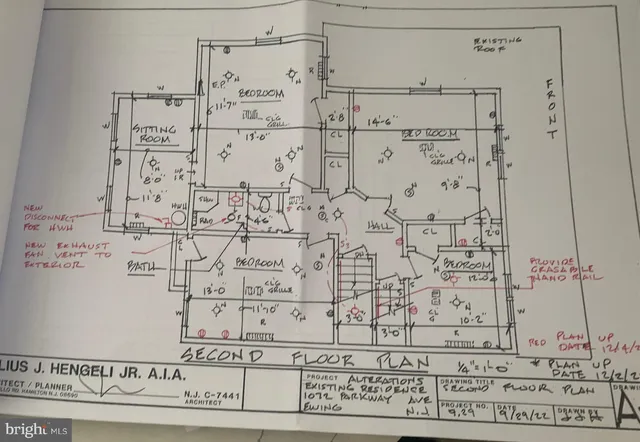 EXISTING
ROOF
FRONT
W
W
W
R
E.P.
BEDROOM
11'-7"
CLG
GRILLE
13'-0"
2'-8"
CL
CL
14'-6"
BEDROOM
CLG
GRILLE
9'-8"
SITTING
ROOM
8'-0"
11'-8"
HWH
NEW
DISCONNECT
FOR HWH
NEW EXHAUST
FAN VENT TO
EXTERIOR
BATH
RAD
4'-6"
HALL
CL
2'-0"
BEDROOM
CLG
GRILLE
13'-0"
11'-10"
R
UP
3'-0"
3'-0"
BEDROOM
12'-0"
10'-2"
R
PROVIDE
GRASPABLE
HAND RAIL
SECOND FLOOR PLAN
1/4" = 1'-0"
RED PLAN UP
DATE
* PLAN UP
DATE
LIUS J. HENGELI JR. A.I.A.
ITECT / PLANNER
N.J. C-7441
ARCHITECT
PROJECT ALTERATIONS
EXISTING RESIDENCE
1072 PARKWAY AVE
EWING N.J.
DRAWING TITLE
SECOND FLOOR PLAN
PROJECT NO.
9.29
DATE
9/29/22
DRAWN BY
JJH
A
bright MLS